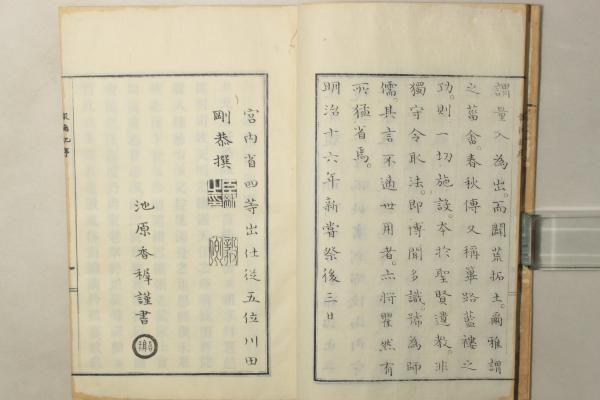 謂量入為出。而闢荒拓土。爾雅謂
之菑畬。春秋傳又稱篳路藍褸之
功。則一切施設。本於聖賢遺敎。非
獨守令取法。即博聞多識。號為師
儒。其言不適世用者。亦將瞿然有
所猛省焉。
明治十六年新嘗祭後三日
宮內省四等出仕從五位川田
剛恭撰
池原香穉謹書